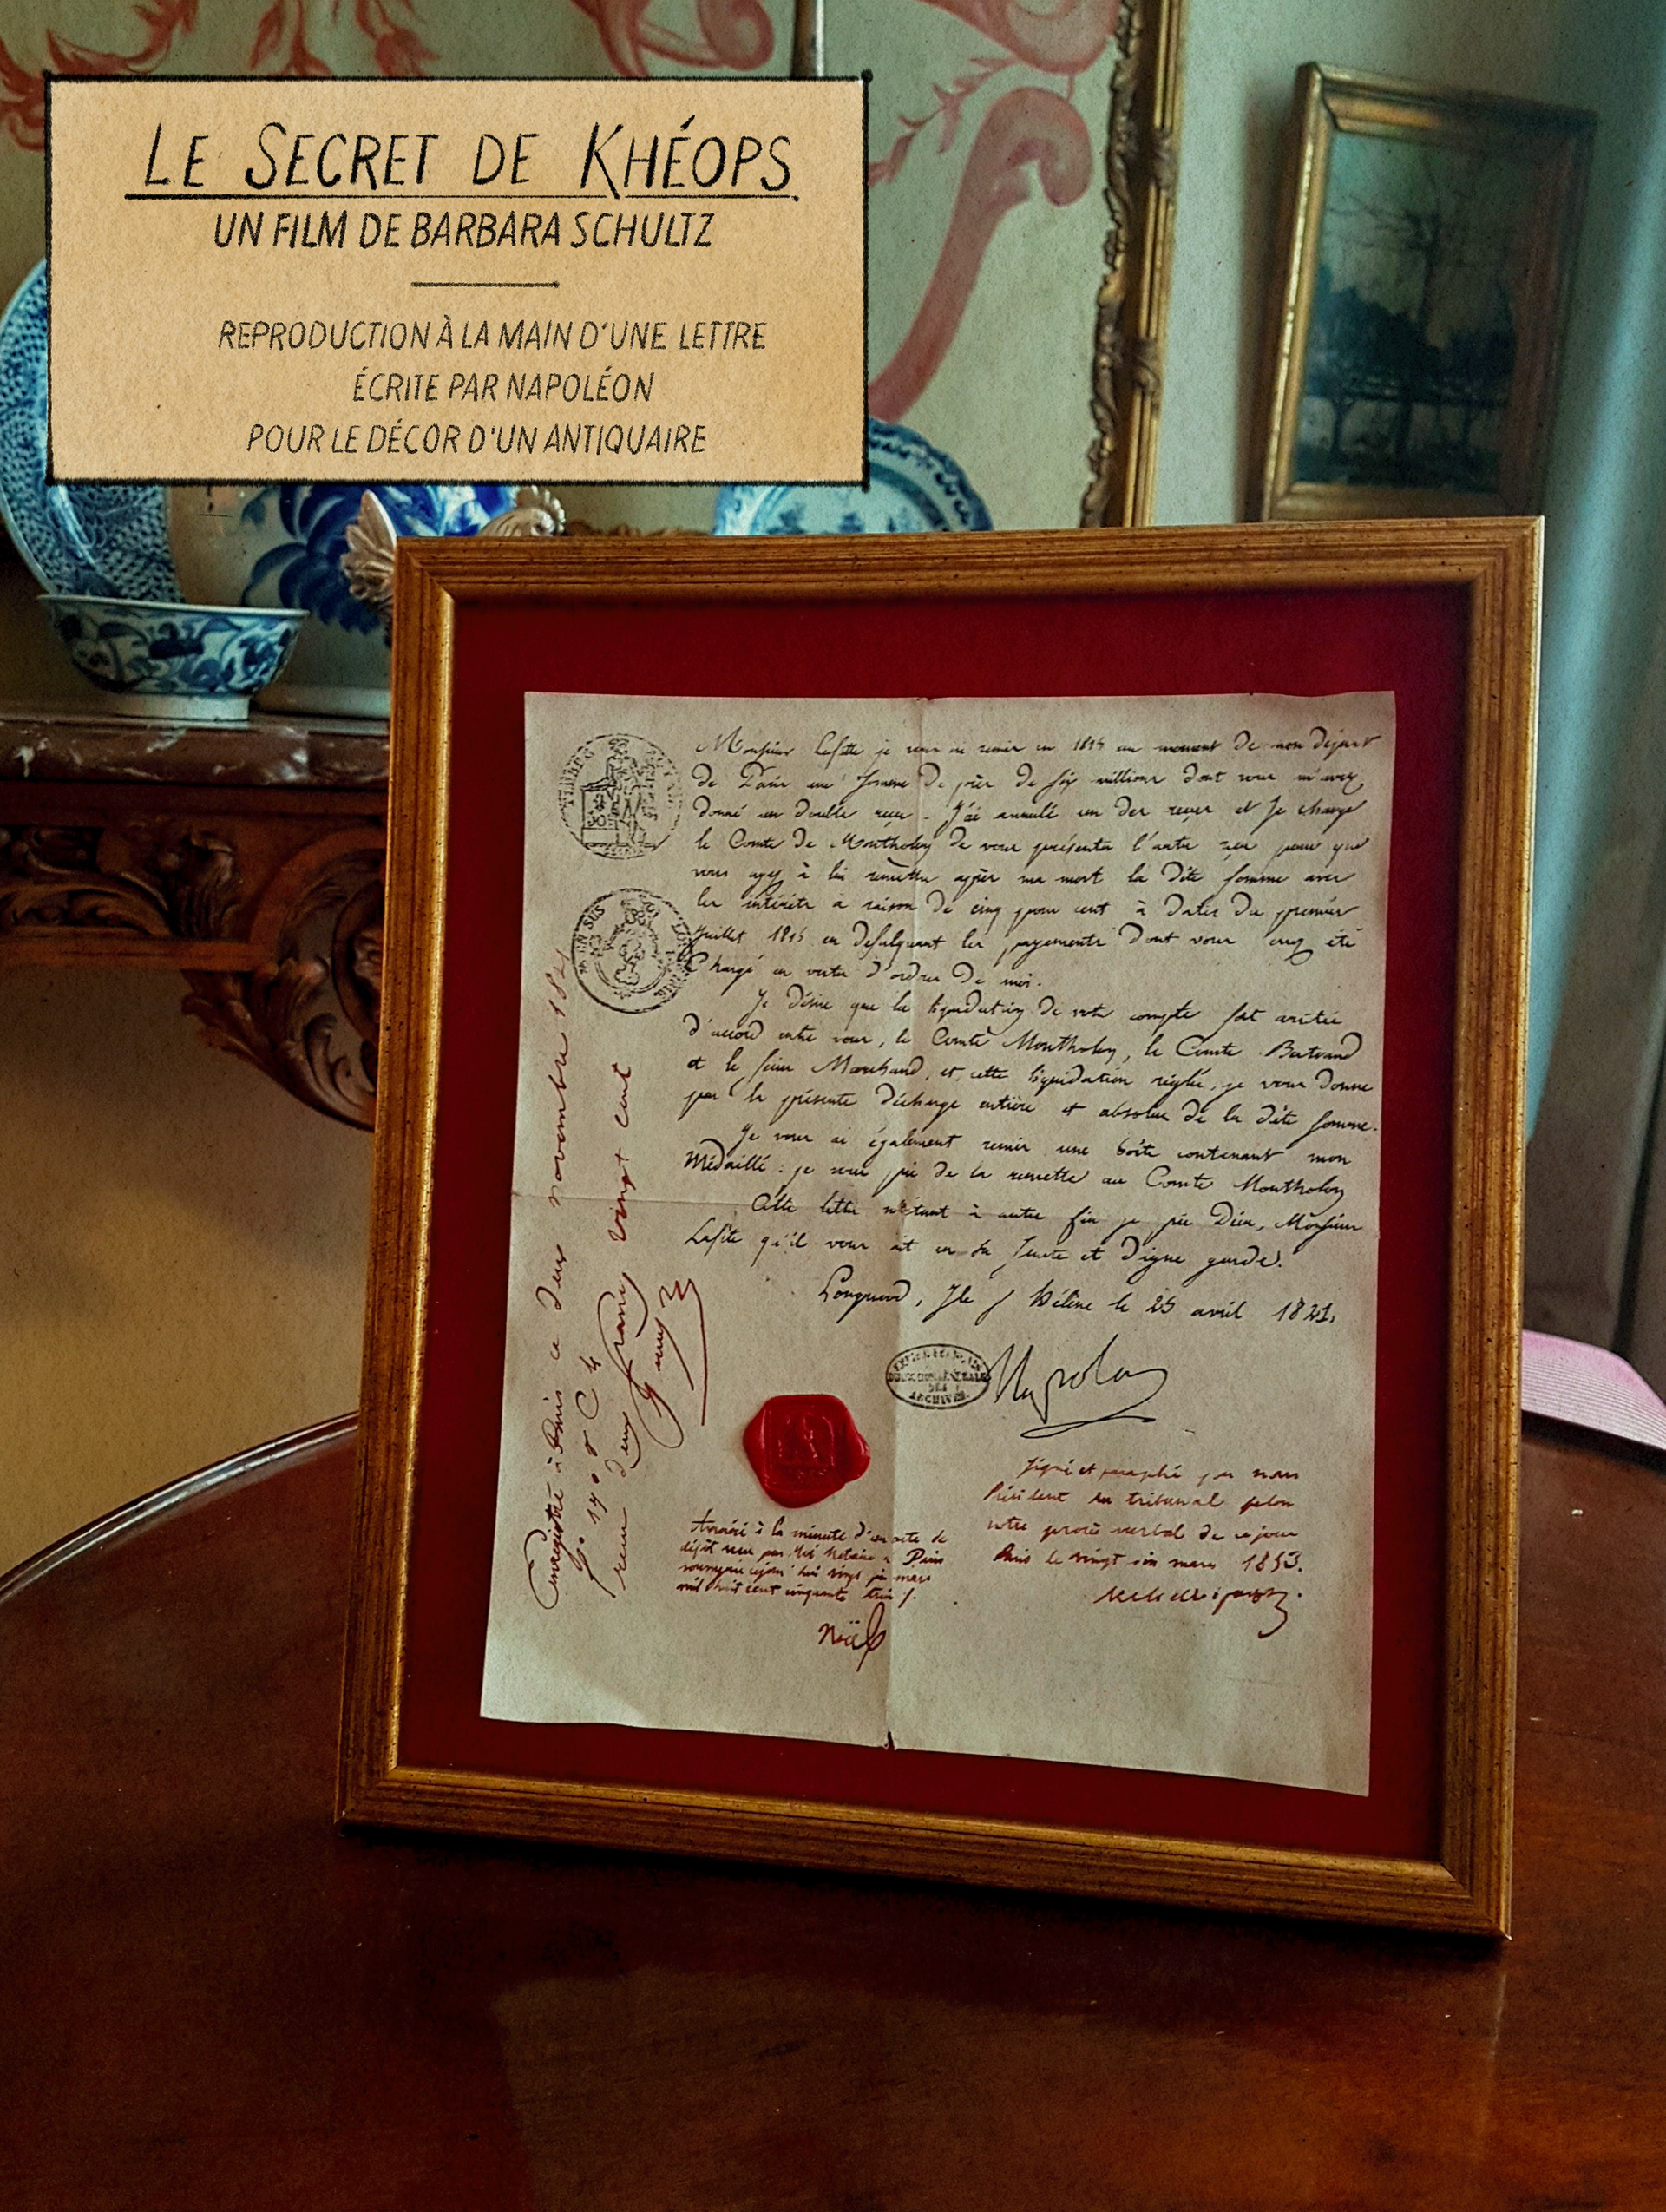 LE SECRET DE KHÉOPS
UN FILM DE BARBARA SCHULTZ
REPRODUCTION À LA MAIN D'UNE LETTRE
ÉCRITE PAR NAPOLÉON
POUR LE DÉCOR D'UN ANTIQUAIRE
Monsieur Lafitte je vous ai remis en 1815 au moment de mon depart
de Paris une somme de près de six millions dont vous m'avez
donné un double reçu. J'ai annullé un des reçus et je charge
le Comte de Montholon de vous présenter l'autre reçu pour que
vous ayez à lui remettre après ma mort la dite somme avec
les intérêts à raison de cinq pour cent à dater du premier
Juillet 1815 en defalquant les payements dont vous avez été
Chargé en vertu d'ordres de moi.
Je désire que la liquidation de votre compte soit arrêtée
d'accord entre vous, le Comte Montholon, le Comte Bertrand
et le sieur Marchand, et, cette liquidation réglée, je vous donne
par la présente décharge entière et absolue de la dite somme.
Je vous ai également remis une boîte contenant mon
Médaillé : je vous prie de la remettre au Comte Montholon
Cette lettre n'étant à autre fin je prie Dieu, Monsieur
Lafite qu'il vous ait en sa sainte et digne garde.
Longwood, Ile S Hélène le 25 avril 1821.
DES
ARCHIVES
Napoleon
Enregistré à Paris ce deux novembre 1821
vingt cent
reçu deux francs
Signé et paraphé par nous
Président du tribunal selon
notre procès verbal de ce jour
Paris le vingt six mars 1853.
Annéxé à la minute d'un acte de
dépôt reçu par Me Notaire à Paris
soussigné aujourd'hui vingt six mars
mil huit cent cinquante trois /.
Noël